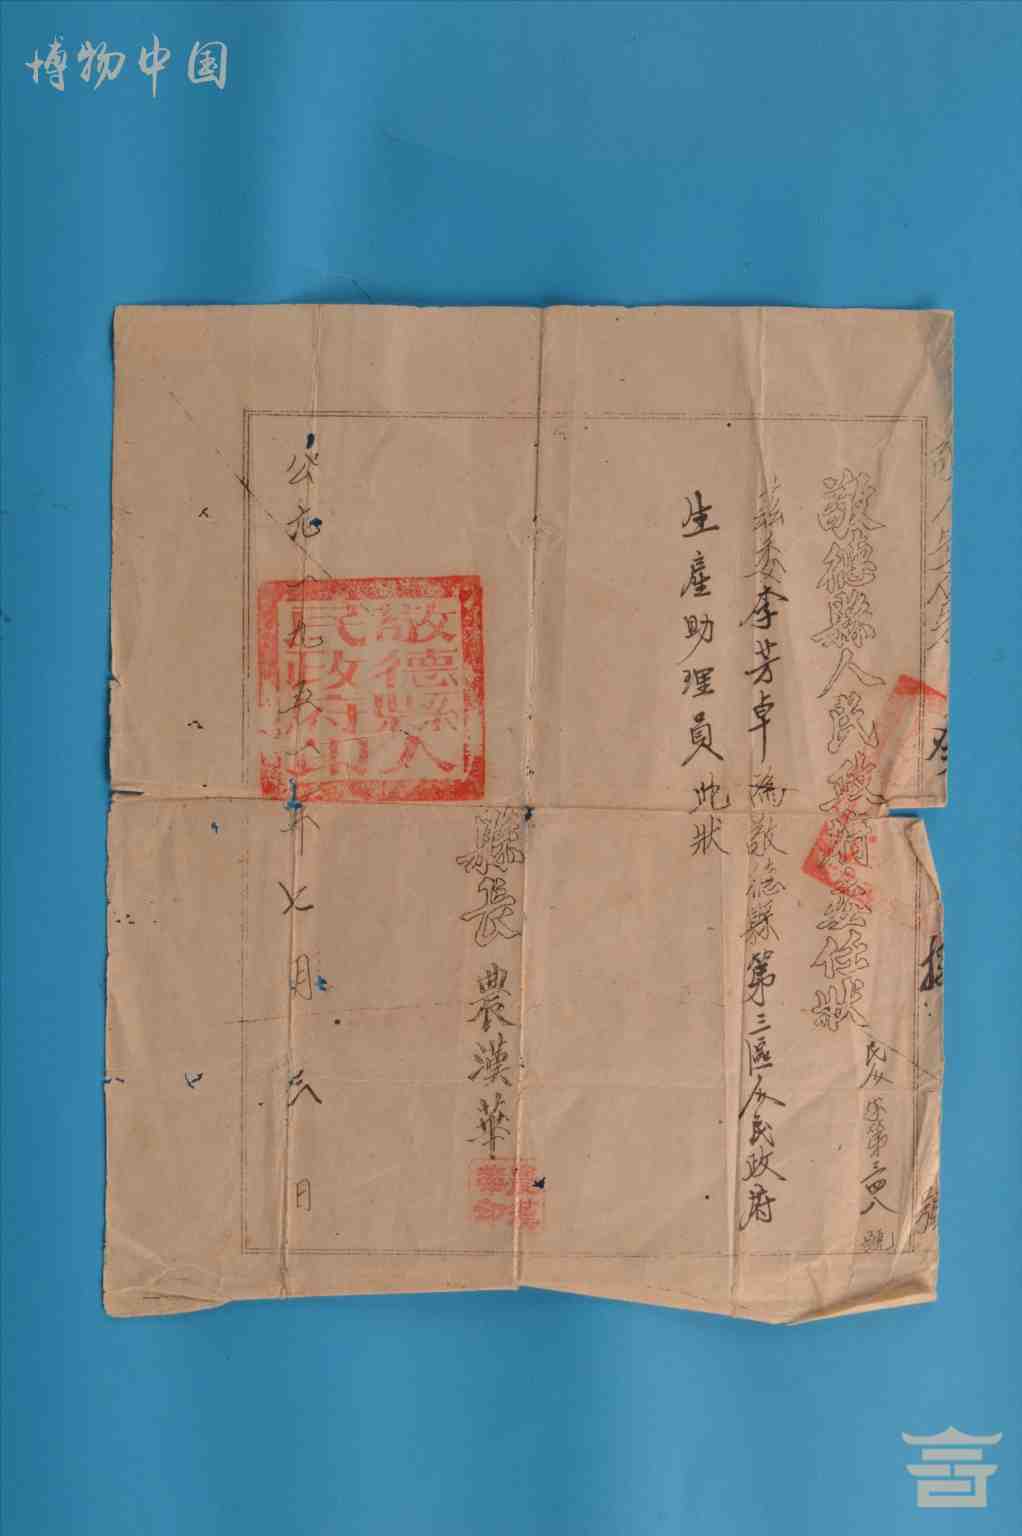 博物中国
敬德縣人民政府委任狀
民人字第三四八號
茲委李芳卓為敬德縣第三區人民政府
生產助理員此狀
縣長 農漢華
農漢華印
公元一九五一年七月 日
敬德縣人民政府印